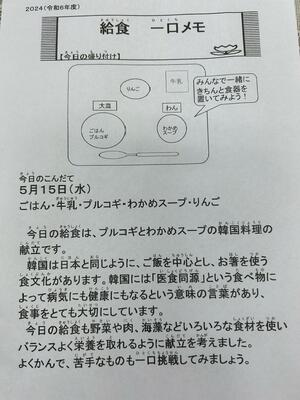 2024(令和6年度)
給食 一口メモ
【今日の盛り付け】
りんご
牛乳
大皿
わん
ごはん
プルコギ
わかめ
スープ
みんなで一緒に
きちんと食器を
置いてみよう!
今日のこんだて
5月15日(水)
ごはん・牛乳・プルコギ・わかめスープ・りんご
今日の給食は、プルコギとわかめスープの韓国料理の
献立です。
韓国は日本と同じように、ご飯を中心とし、お箸を使う
食文化があります。韓国には「医食同源」という食べ物に
よって病気にも健康にもなるという意味の言葉があり、
食事をとても大切にしています。
今日の給食も野菜や肉、海藻などいろいろな食材を使い
バランスよく栄養を取れるように献立を考えました。
よくかんで、苦手なものも一口挑戦してみましょう。